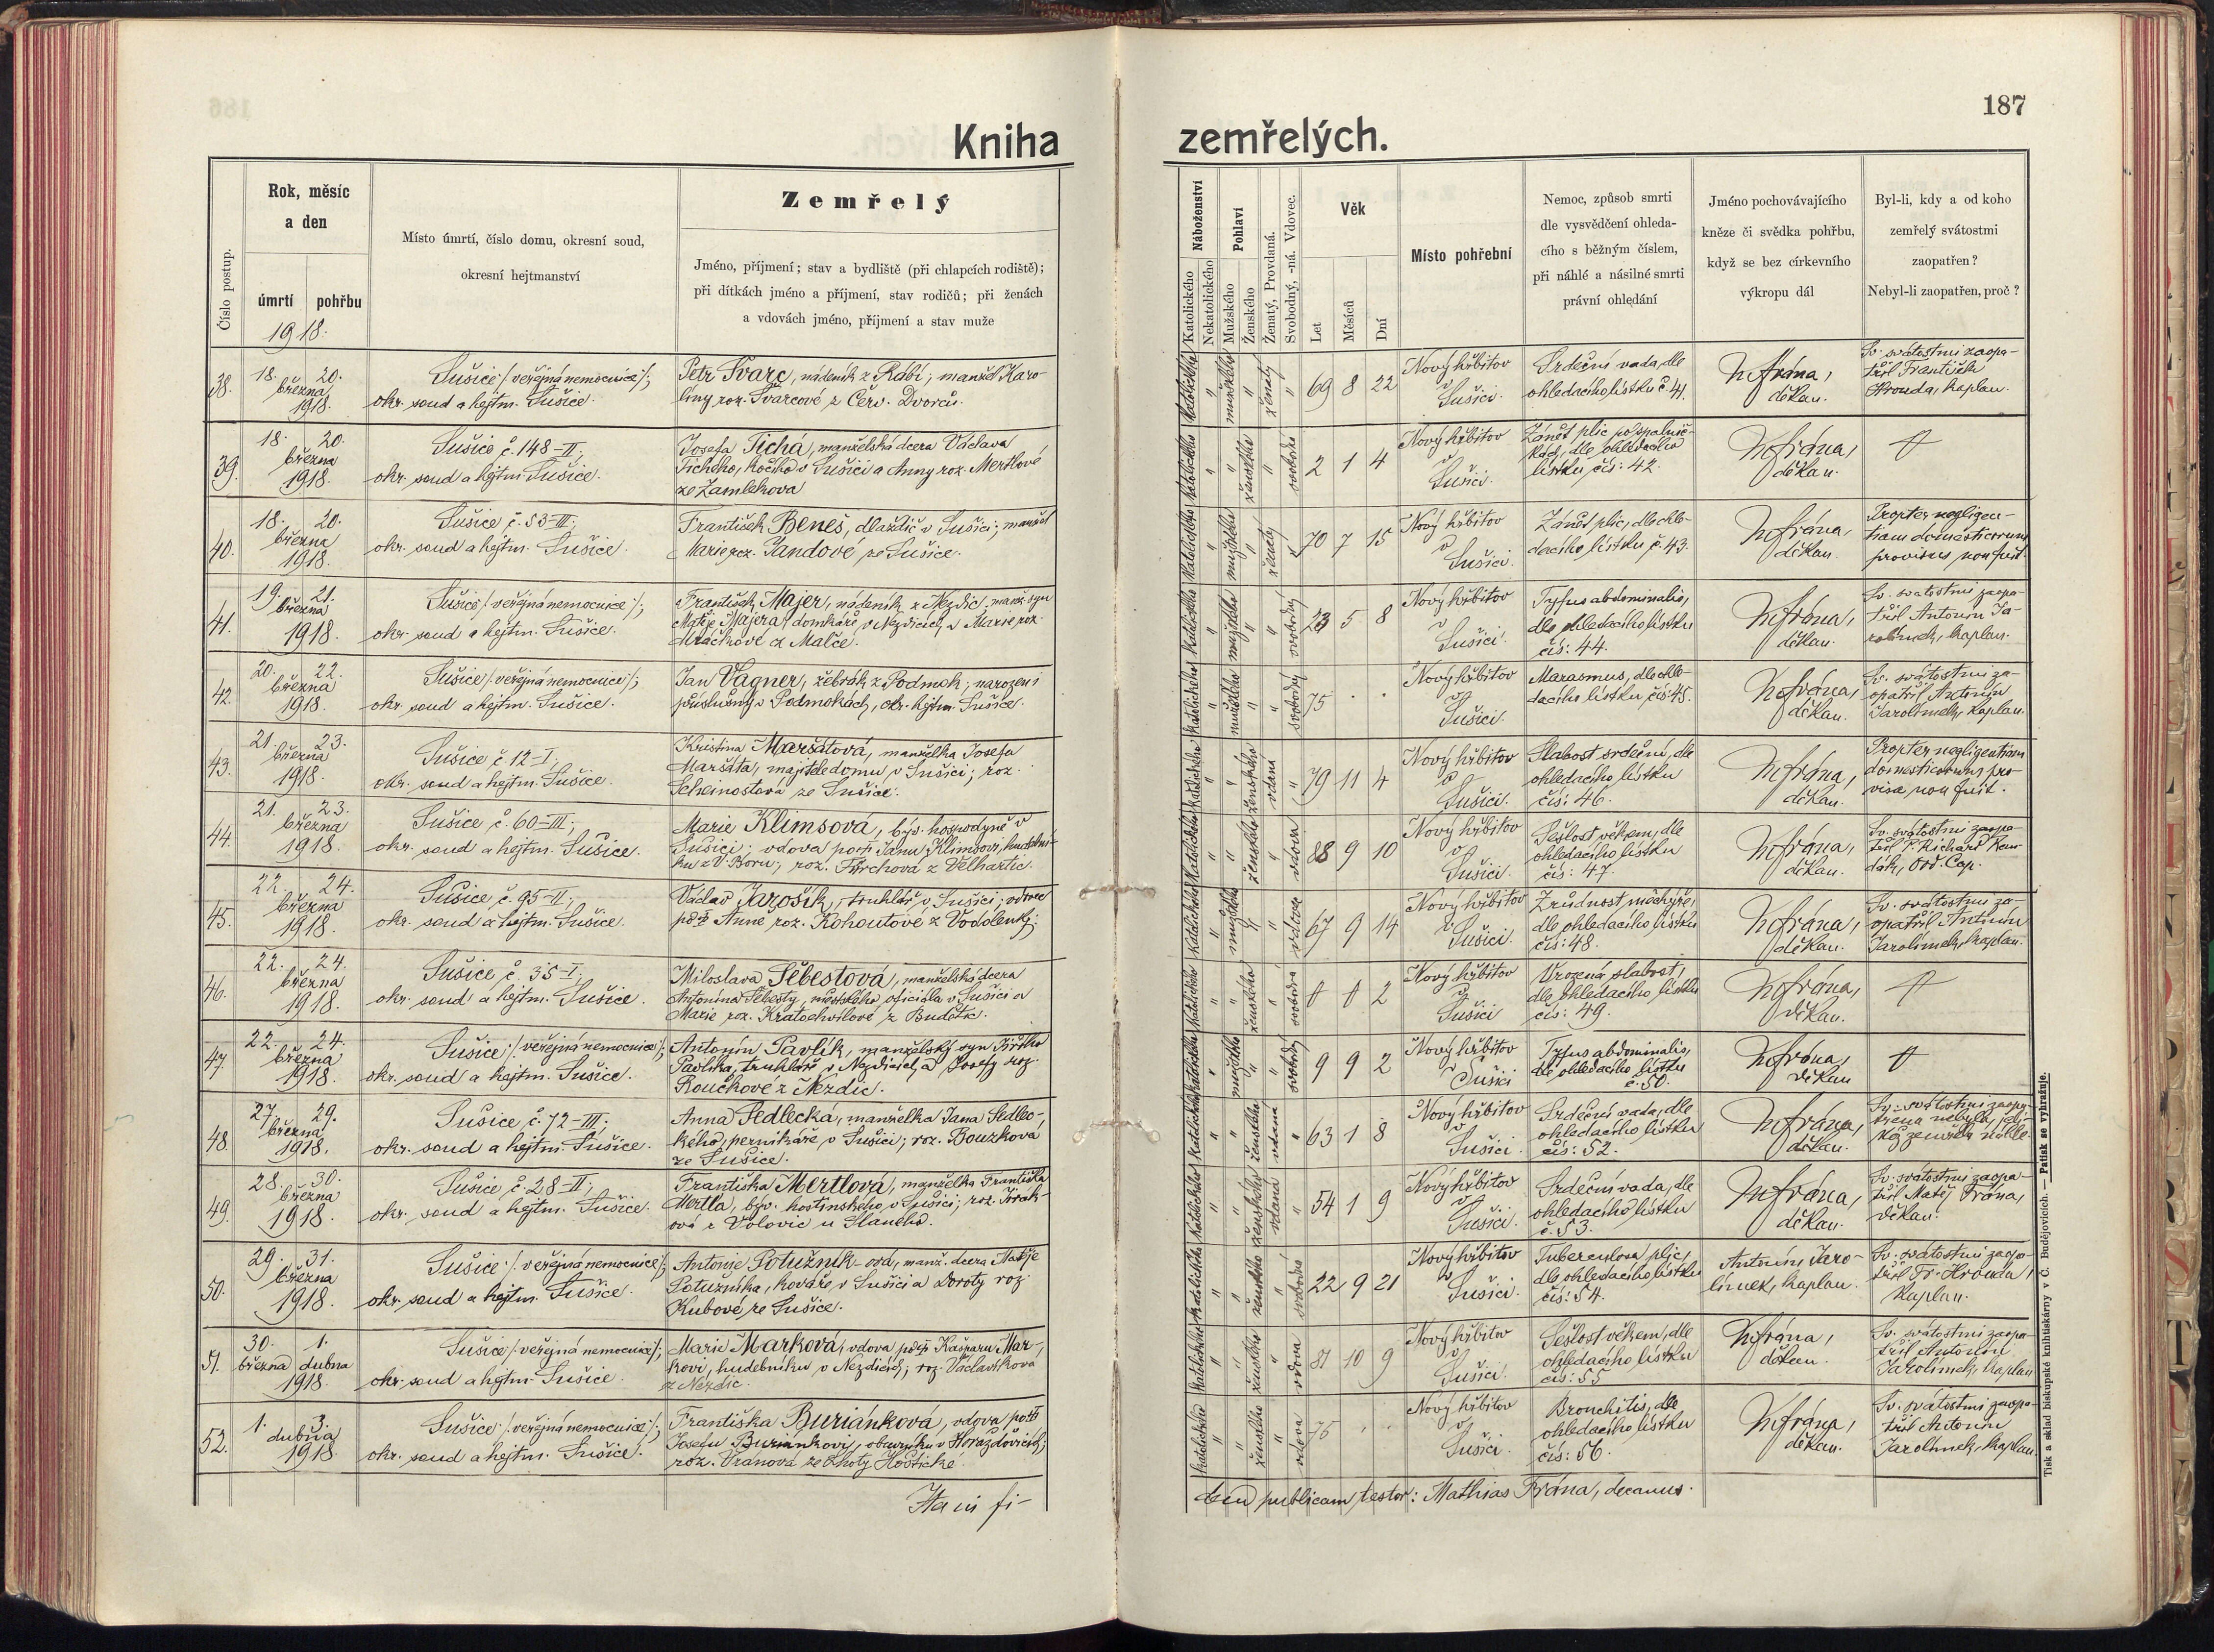 187
Kniha zemřelých.
Číslo postup.
Rok, měsíc
a den
úmrtí pohřbu
1918.
Místo úmrtí, číslo domu, okresní soud,
okresní hejtmanství
Zemřelý
Jméno, příjmení; stav a bydliště (při chlapcích rodiště);
při dítkách jméno a příjmení, stav rodičů; při ženách
a vdovách jméno, příjmení a stav muže
Náboženství
Katolického
Nekatolického
Pohlaví
Mužského
Ženského
Ženatý, Provdaná.
Svobodný, -ná. Vdovec.
Věk
Let
Měsíců
Dní
Místo pohřební
Nemoc, způsob smrti
dle vysvědčení ohleda-
cího s běžným číslem,
při náhlé a násilné smrti
právní ohledání
Jméno pochovávajícího
kněze či svědka pohřbu,
když se bez církevního
výkropu dál
Byl-li, kdy a od koho
zemřelý svátostmi
zaopatřen?
Nebyl-li zaopatřen, proč?
38.
18. 20.
března
1918.
Sušice /: veřejná nemocnice :/;
okr. soud a hejtm. Sušice.
Petr Švarc, nádeník z Rábí; manžel Karo-
liny roz. Švarcové z Červ. Dvorců.
katolického
mužského
ženatý
69 8 22
Nový hřbitov
v
Sušici.
Srdeční vada, dle
ohledacího lístku č. 41.
M. Frána,
děkan.
Sv. svátostmi zaopa-
třil František
Hrouda, kaplan.
39.
18. 20.
března
1918.
Sušice č. 148-II;
okr. soud a hejtm. Sušice.
Josefa Tichá, manželská dcera Václava
Tichého, kočího v Sušici a Anny roz. Mertlové
ze Zamlekova
katolického
ženského
svobodná
2 1 4
Nový hřbitov
v
Sušici.
Zánět plic po spalnič-
kách, dle ohledacího
lístku čís: 42.
M. Frána,
děkan.
40.
18. 20.
března
1918.
Sušice č. 53-III;
okr. soud a hejtm. Sušice.
František Beneš, dlaždič v Sušici; manžel
Marie roz. Jandové ze Sušice.
katolického
mužského
ženatý
70 7 15
Nový hřbitov
v
Sušici.
Zánět plic, dle ohle-
dacího lístku č. 43.
M. Frána,
děkan.
Propter negligen-
tiam domesticorum
provisus non fuit.
41.
19. 21.
března
1918.
Sušice /: veřejná nemocnice :/;
okr. soud a hejtm. Sušice.
František Majer, nádeník z Nezdic; manž. syn
Matěje Majera, domkáře v Nezdicích, a Marie roz.
Mráčkové z Malče.
katolického
mužského
svobodný
23 5 8
Nový hřbitov
v
Sušici.
Tyfus abdominalis,
dle ohledacího lístku
čís: 44.
M. Frána,
děkan.
Sv. svátostmi zaopa-
třil Antonín Ja-
rolímek, kaplan.
42.
20. 22.
března
1918.
Sušice /: veřejná nemocnice :/;
okr. soud a hejtm. Sušice.
Jan Vágner, žebrák z Podmok; narozen i
příslušný v Podmokách, okr. hejtm. Sušice.
katolického
mužského
svobodný
75 . .
Nový hřbitov
v
Sušici.
Marasmus, dle ohle-
dacího lístku čís: 45.
M. Frána,
děkan.
Sv. svátostmi za-
opatřil Antonín
Jarolímek, kaplan.
43.
21. 23.
března
1918.
Sušice č. 12-I;
okr. soud a hejtm. Sušice.
Kristina Maršátová, manželka Josefa
Maršáta, majitele domu v Sušici; roz.
Scheinostová ze Sušice.
katolického
ženského
vdaná
79 11 4
Nový hřbitov
v
Sušici.
Slabost srdeční, dle
ohledacího lístku
čís: 46.
M. Frána,
děkan.
Propter negligentiam
domesticorum pro-
visa non fuit.
44.
21. 23.
března
1918.
Sušice č. 60-III;
okr. soud a hejtm. Sušice.
Marie Klimsová, býv. hospodyně v
Sušici; vdova po Janu Klimsovi, hudební-
ku z V. Boru; roz. z Velhartic.
katolického
ženského
vdova
88 9 10
Nový hřbitov
v
Sušici.
Sešlost věkem, dle
ohledacího lístku
čís: 47.
M. Frána,
děkan.
Sv. svátostmi zaopa-
třil P. Richard
Ord. Cap.
45.
22. 24.
března
1918.
Sušice č. 95-II;
okr. soud a hejtm. Sušice.
Václav Jarošík, truhlář v Sušici; vdovec
po Anně roz. Kohoutové z Vodolenky.
katolického
mužského
vdovec
67 9 14
Nový hřbitov
v
Sušici.
Zrůdnost měchýře,
dle ohledacího lístku
čís: 48.
M. Frána,
děkan.
Sv. svátostmi za-
opatřil Antonín
Jarolímek, kaplan.
46.
22. 24.
března
1918.
Sušice č. 35-I;
okr. soud a hejtm. Sušice.
Miloslava Šebestová, manželská dcera
Antonína Šebesty, městského oficiála v Sušici a
Marie roz. Kratochvílové z Budětic.
katolického
ženského
svobodná
2
Nový hřbitov
v
Sušici
Vrozená slabost,
dle ohledacího lístku
čís: 49.
M. Frána,
děkan.
47.
22. 24.
března
1918.
Sušice /: veřejná nemocnice :/;
okr. soud a hejtm. Sušice.
Antonín Pavlík, manželský syn Jiřího
Pavlíka, truhláře v Nezdicích, a Josefy roz.
Roučkové z Nezdic.
katolického
mužského
svobodný
9 9 2
Nový hřbitov
v Sušici
Tyfus abdominalis,
dle ohledacího lístku
č. 50.
M. Frána,
děkan
48.
27. 29.
března
1918.
Sušice č. 72-III;
okr. soud a hejtm. Sušice.
Anna Sedlecká, manželka Jana Sedlec-
kého, perníkáře v Sušici; roz. Bouzková
ze Sušice.
katolického
ženského
vdaná
63 1 8
Nový hřbitov
v
Sušici.
Srdeční vada, dle
ohledacího lístku
čís: 52.
M. Frána,
děkan.
Sv. svátostmi zaopa-
třena nebyla, jeli-
kož zemřela náhle.
49.
28. 30.
března
1918.
Sušice č. 28-II;
okr. soud a hejtm. Sušice.
Františka Mertlová, manželka Františka
Mertla, býv. hostinského v Sušici; roz.
ová z Volovic u Slaného.
katolického
ženského
vdaná
54 1 9
Nový hřbitov
v
Sušici.
Srdeční vada, dle
ohledacího lístku
č. 53.
M. Frána,
děkan.
Sv. svátostmi zaopa-
třil Matěj Frána,
děkan.
50.
29. 31.
března
1918.
Sušice /: veřejná nemocnice :/;
okr. soud a hejtm. Sušice.
Antonie Potužník-ová, manž. dcera Matěje
Potužníka, kováře v Sušici a Doroty roz.
Kubové ze Sušice.
katolického
ženského
svobodná
22 9 21
Nový hřbitov
v
Sušici.
Tuberculosa plic,
dle ohledacího lístku
čís: 54.
Antonín Jaro-
límek, kaplan.
Sv. svátostmi zaopa-
třil Fr. Hrouda,
kaplan.
51.
30. 1.
března dubna
1918.
Sušice /: veřejná nemocnice :/;
okr. soud a hejtm. Sušice.
Marie Marková, vdova po Kašparu Mar-
kovi, hudebníku v Nezdicích; roz. Václavíková
z Nezdic.
katolického
ženského
vdova
81 10 9
Nový hřbitov
v
Sušici.
Sešlost věkem, dle
ohledacího lístku
čís: 55
M. Frána,
děkan.
Sv. svátostmi zaopa-
třil Antonín
Jarolímek, kaplan
52.
1. 3.
dubna
1918
Sušice /: veřejná nemocnice :/;
okr. soud a hejtm. Sušice.
Františka Buriánková, vdova po
Josefu Buriánkovi, obuvníku v Horažďovicích;
roz. Vránová ze Lhoty Hoštické.
katolického
ženského
vdova
75 . .
Nový hřbitov
v
Sušici.
Bronchitis, dle
ohledacího lístku
čís: 56.
M. Frána,
děkan.
Sv. svátostmi zaopa-
třil Antonín
Jarolímek, kaplan.
Hanc fi-
dem publicam testor: Mathias Frána, decanus.
Tisk a sklad biskupské knihtiskárny v Č. Budějovicích. — Patisk se vyhražuje.